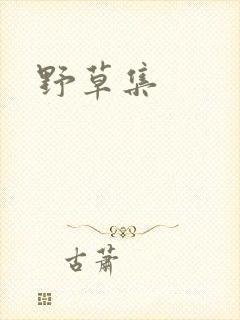 野草集
古萧